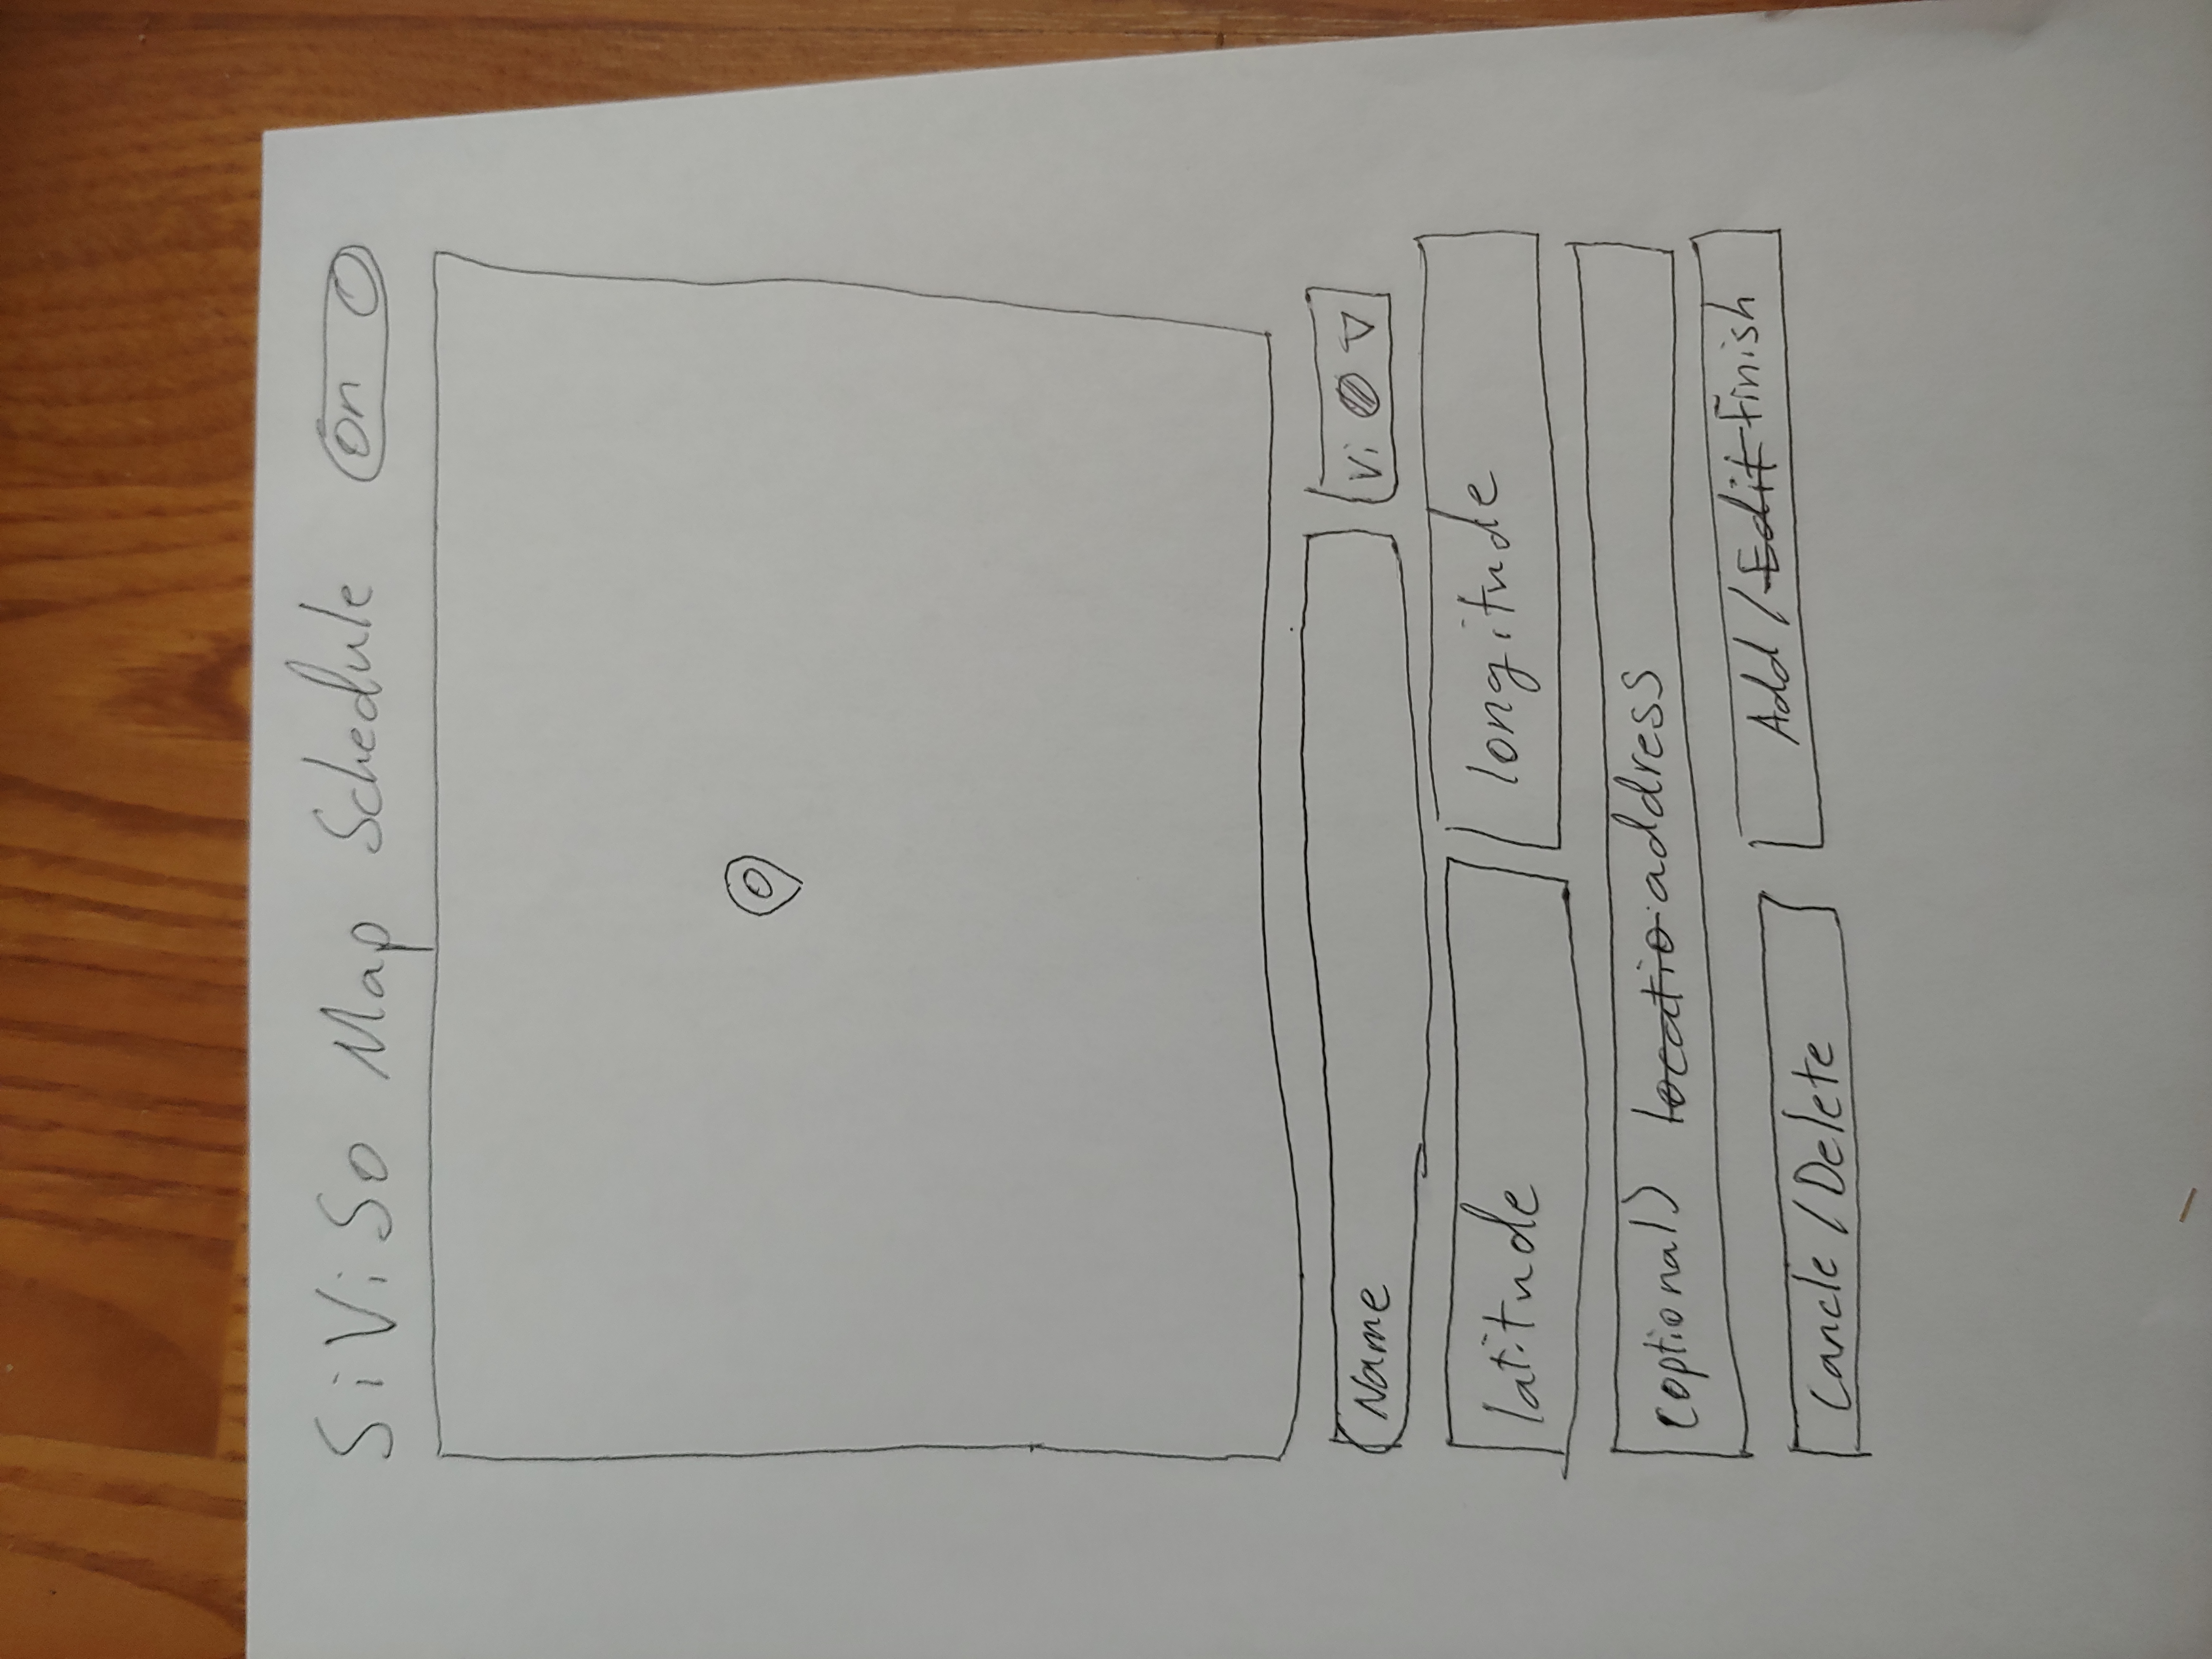 SiViSo Map Schedule On
Name
Vi
latitude longitude
(optional) locatio address
Cancle / Delete Add / Edit Finish